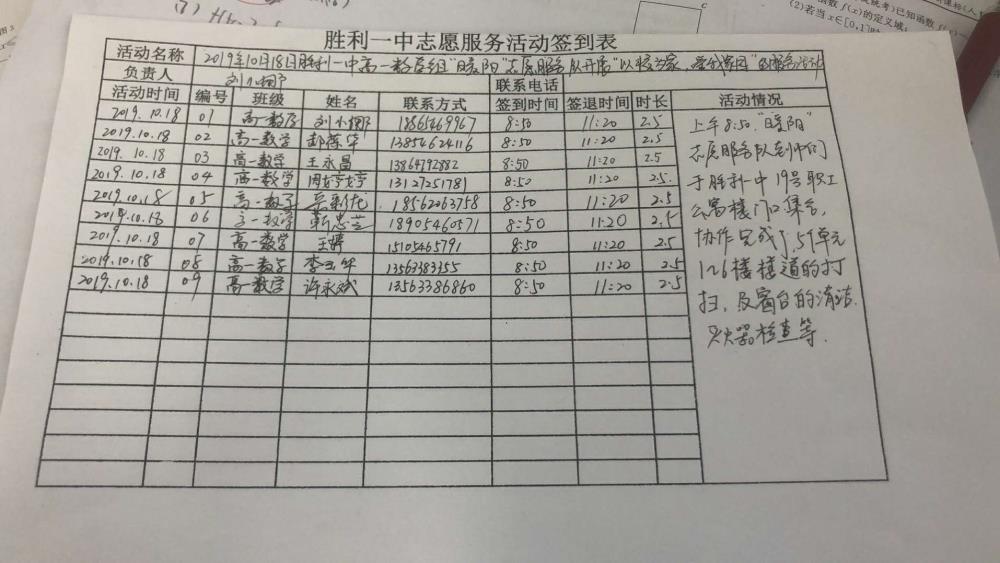 胜利一中志愿服务活动签到表
活动名称 2019年10月18日胜利一中高一数学组"暖阳"志愿服务队开展"以校为家, 爱我家园"的服务活动
负责人 刘小娜 联系电话
活动时间 编号 班级 姓名 联系方式 签到时间 签退时间 时长 活动情况
2019.10.18 01 高一数学 刘小娜 18865469967 8:50 11:20 2.5
2019.10.18 02 高一数学 13854624116 8:50 11:20 2.5
2019.10.18 03 高一数学 王永昌 13864792882 8:50 11:20 2.5
2019.10.18 04 高一数学 周婷婷 13127251781 8:50 11:20 2.5
2019.10.18 05 高一数学 18562063758 8:50 11:20 2.5
2019.10.18 06 高一数学 靳忠兰 18905460571 8:50 11:20 2.5
2019.10.18 07 高一数学 王婷 15105465791 8:50 11:20 2.5
2019.10.18 08 高一数学 李玉华 13563383355 8:50 11:20 2.5
2019.10.18 09 高一数学 许永斌 13563386860 8:50 11:20 2.5
上午8:50."暖阳"
志愿服务队到中的
于胜利一中19号职工
公寓楼门口集合,
协作完成 单元
1~6楼楼道的打
扫, 及窗台的清洁.
灭火器检查等.